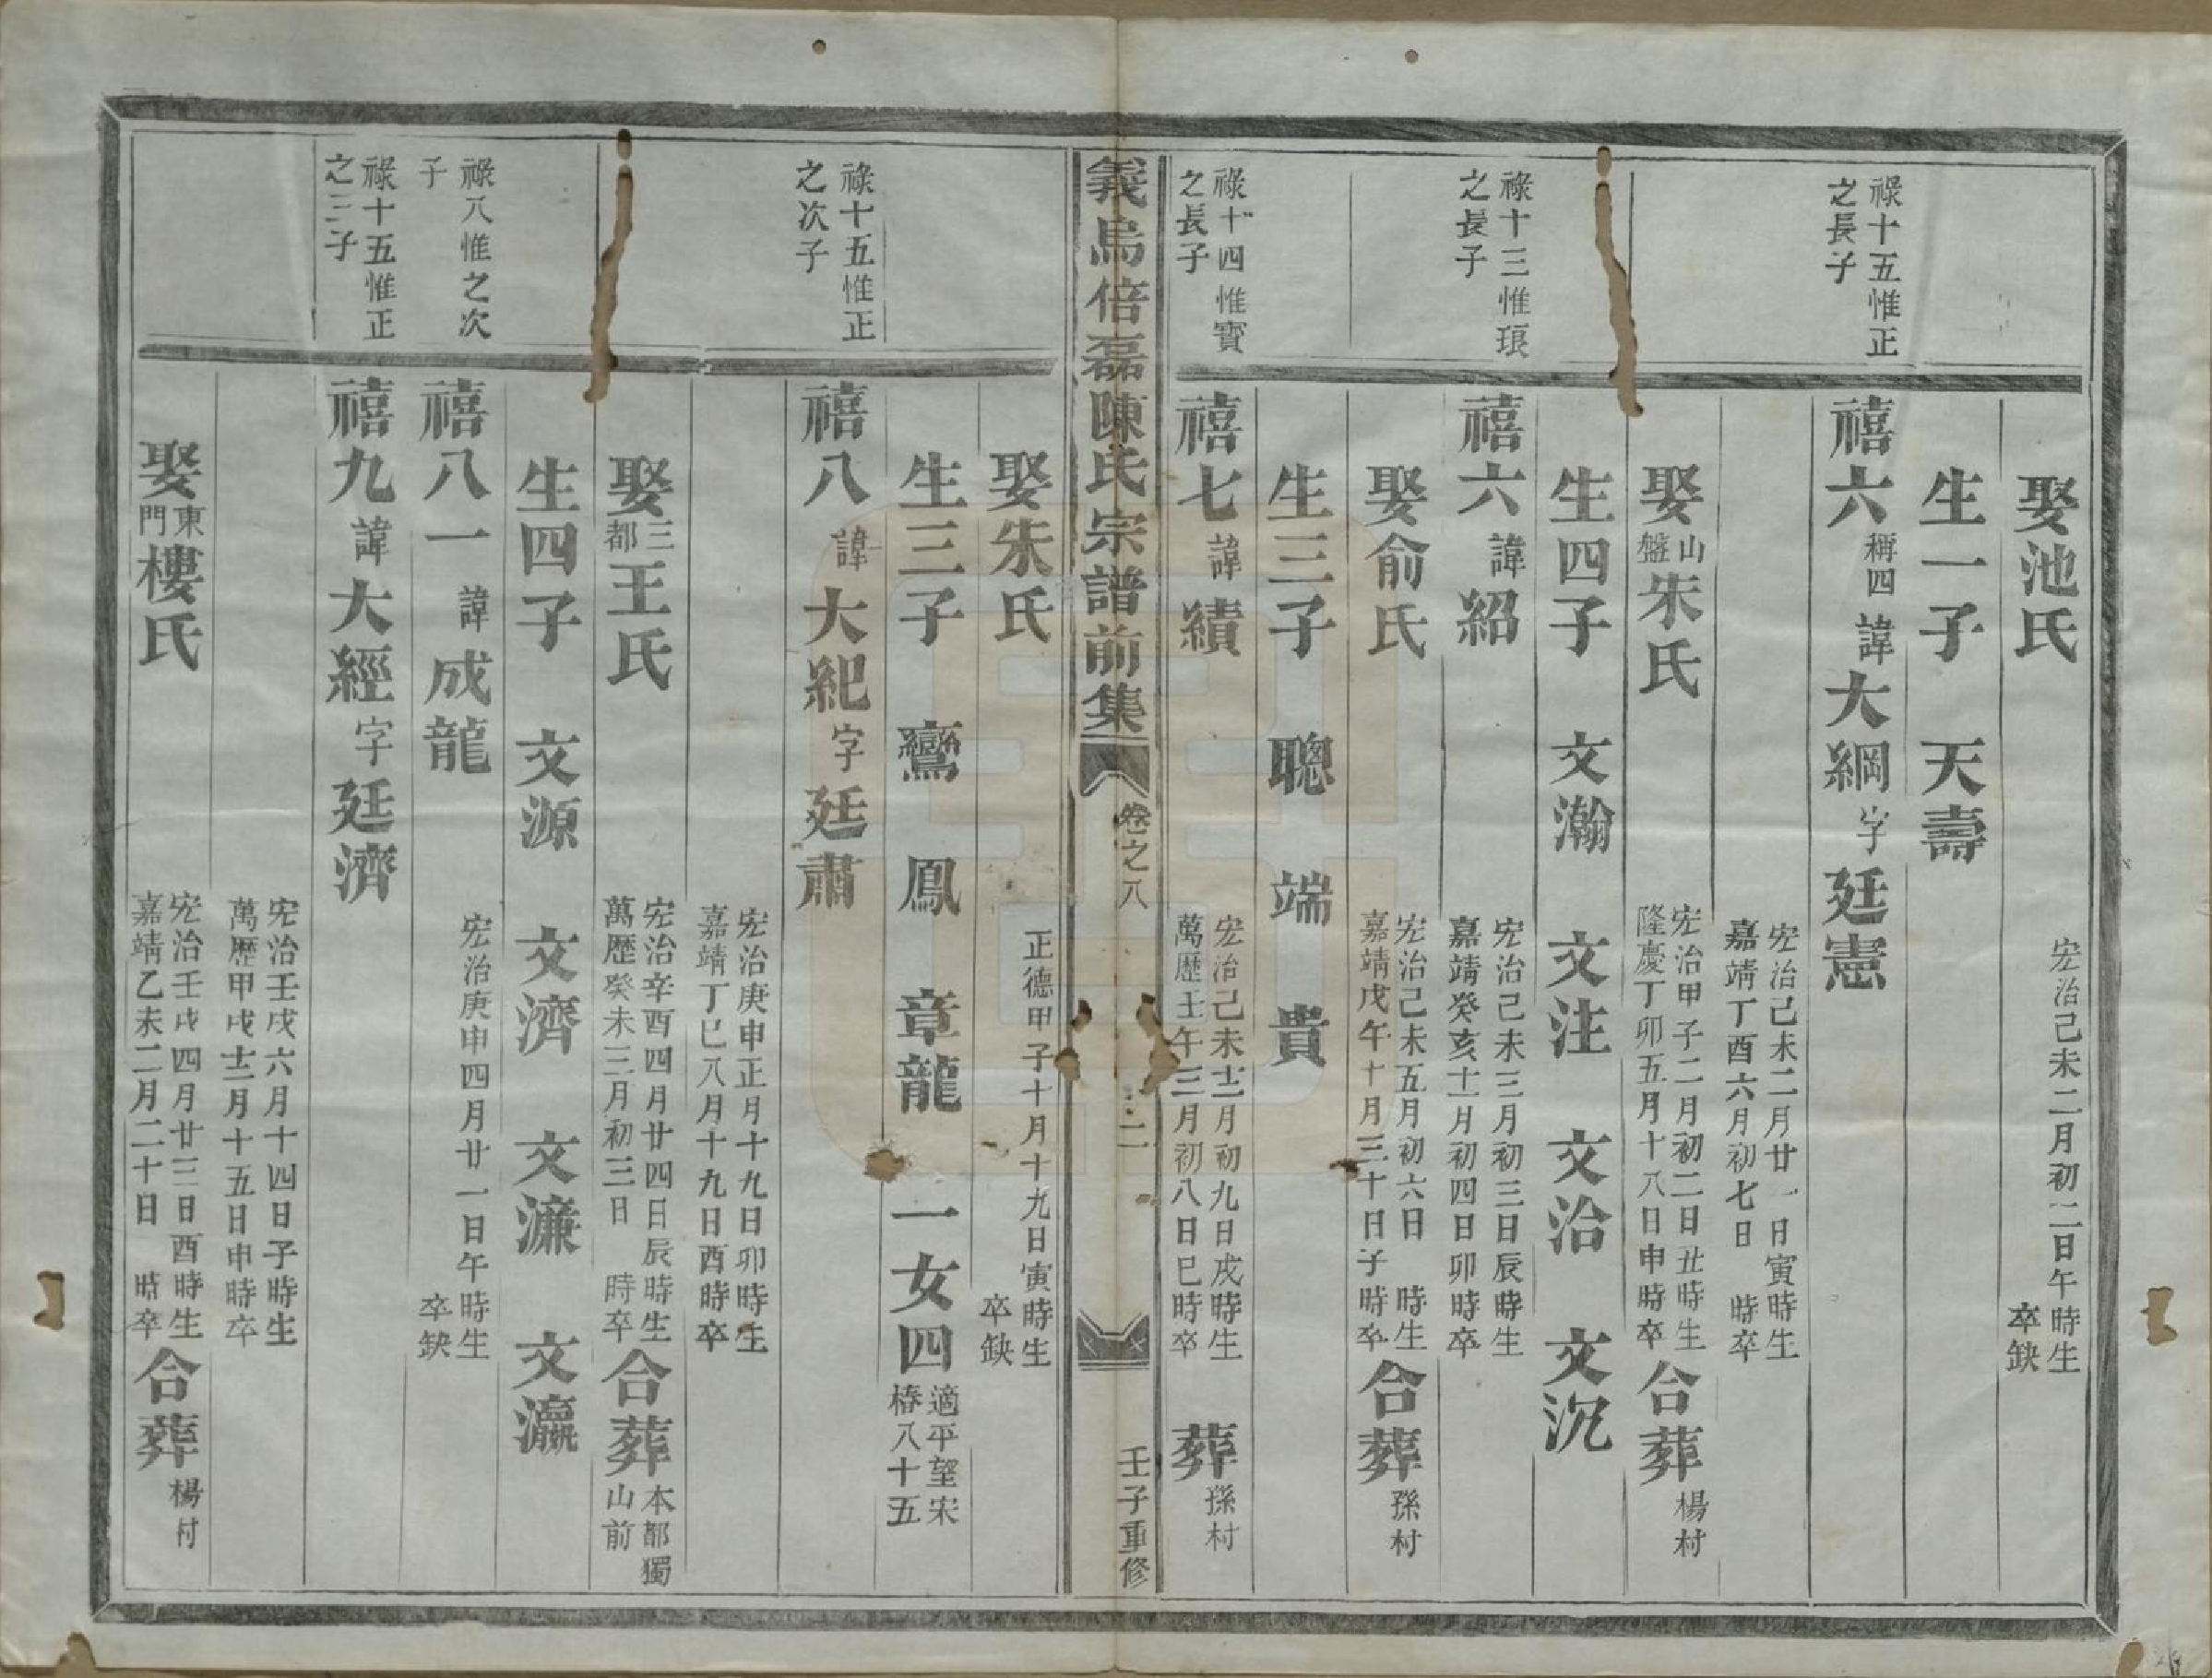 娶池氏 宏治己未二月初二日午時生 卒缺
生一子 天壽
祿十五惟正之長子
禧六 稱四 諱大綱字廷憲
宏治己未二月廿一日寅時生 嘉靖丁酉六月初七日 時卒
娶山盤朱氏 宏治甲子二月初二日丑時生 隆慶丁卯五月十八日申時卒 合葬楊村
生四子 文瀚 文注 文治 文沉
祿十三惟琅之長子
禧六 諱紹 宏治己未三月初三日辰時生 嘉靖癸亥十一月初四日卯時卒
娶俞氏 宏治己未五月初六日 時生 嘉靖戊午十月三十日子時卒 合葬孫村
生三子 聰 端 貴
祿十四惟寶之長子
禧七 諱續 宏治己未十二月初九日戌時生 萬歷壬午三月初八日巳時卒 葬孫村
義烏倍磊陳氏宗譜前集 卷之八 二 壬子重修
娶朱氏 正德甲子十月十九日寅時生 卒缺
生三子 鸞 鳳 章龍 一女四 適平望宋椿八十五
祿十五惟正之次子
禧八 諱大紀字廷肅
宏治庚申正月十九日卯時生 嘉靖丁巳八月十九日酉時卒
娶三都王氏 宏治辛酉四月廿四日辰時生 萬歷癸未三月初三日 時卒 合葬本都獨山前
生四子 文源 文濟 文濂 文瀛
祿八惟之次子
禧八一 諱成龍 宏治庚申四月廿一日午時生 卒缺
祿十五惟正之三子
禧九 諱大經字廷濟
宏治壬戌六月十四日子時生 萬歷甲戌十二月十五日申時卒
娶東門樓氏 宏治壬戌四月廿三日酉時生 嘉靖乙未二月二十日 時卒 合葬楊村